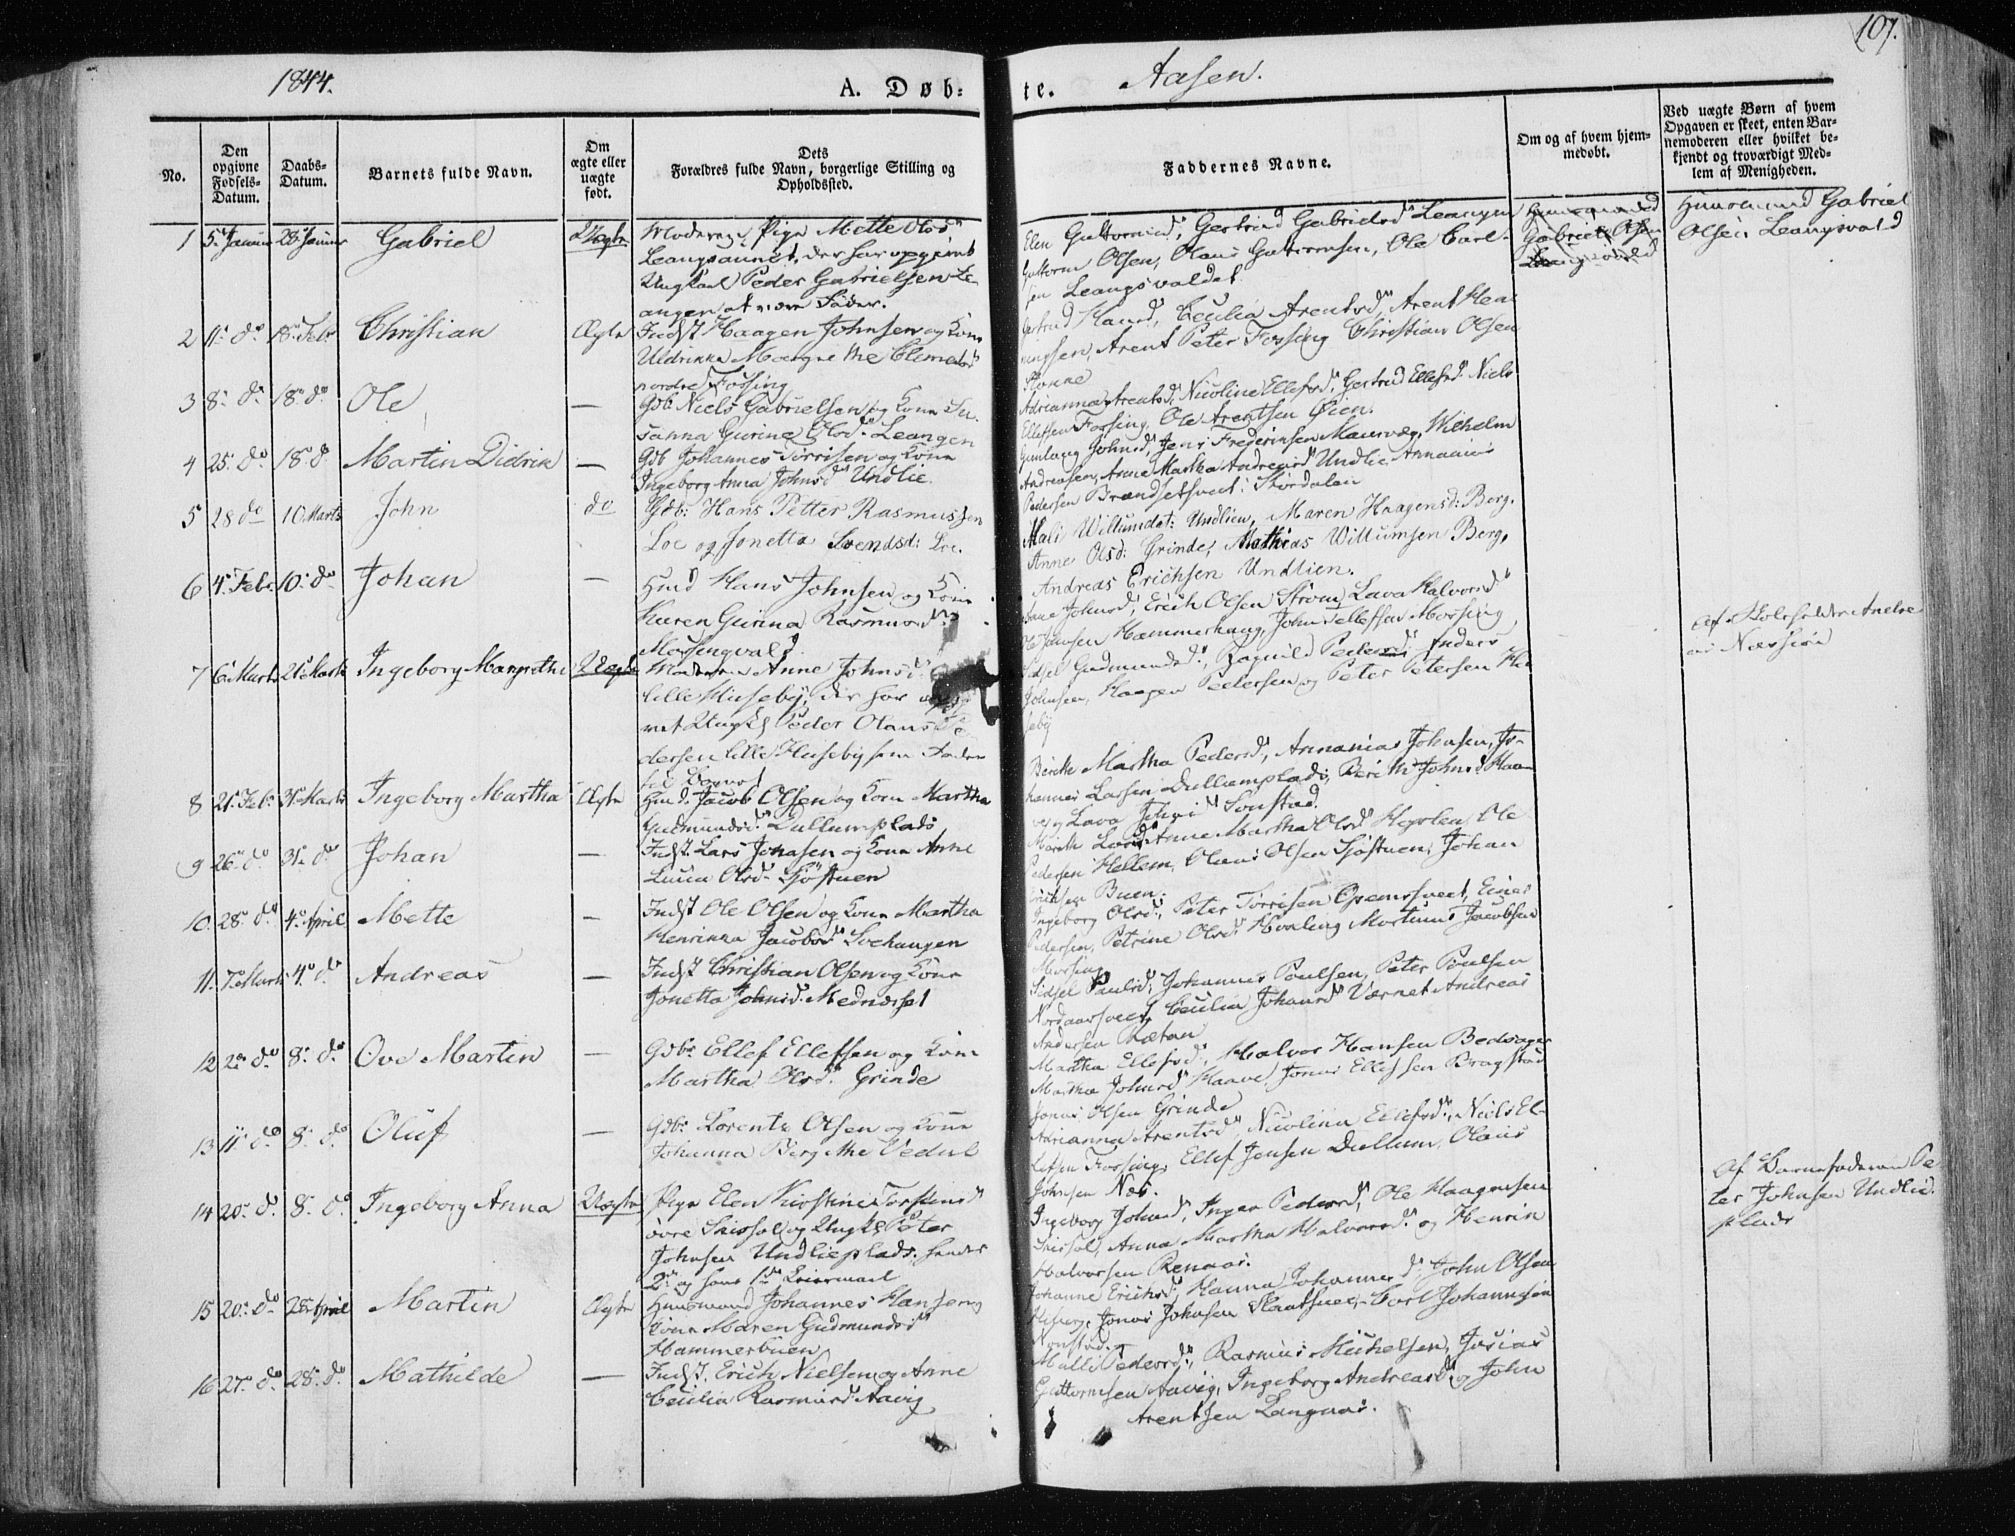 1844.
A. Døb:
te.
Aasen.
107.
No.
Den opgivne Fødsels-Datum.
Daabs-Datum.
Barnets fulde Navn.
Om ægte eller uægte født.
Dets Forældres fulde Navn, borgerlige Stilling og Opholdssted.
Faddernes Navne.
Om og af hvem hjemmedøbt.
Ved uægte Børn af hvem Opgaven er skeet, enten Barnemoderen eller hvilket bekjendt og troværdigt Medlem af Menigheden.
1 5. Januar 28. Januar Gabriel Uægte
Moderen Pige Mette Olsd
Leangaunet, der har opgivet
Ungkarl Peder Gabrielsen Le-
angen at være Fader.
Elen Guttormsd, Gertrud Gabrielsd Leangen
Guttorm Olsen, Olaus Guttormsen, Ole Carl-
sen Leangsvaldet
Gabriel Olsen
Huusmand Gabriel
Olsen Leangsvald
2 11. do 18. Febr Christian Ægte
Indst Haagen Johnsen og Kone
Uldrikka Margrethe Clemetsd
nordre Fossing
Cecilia Arentsd, Arent Hen-
ningsen, Arent Peter Fossing Christian Olsen
3 8. do 18. do Ole —
Gdb. Niels Gabrielsen og Kone Su-
sanna Gurine Olsd. Leangen
Adrianna Arentsd, Nicoline Ellefsd, Gertrud Ellefsd. Niels
Ellefsen Fossing, Ole Arentsen Øien.
4 25. do 18. d. Martin Didrik —
Gdb Johannes Torrisen og Kone
Ingeborg Anna Johnsd Undlie.
Gunlaug Johnsd Jens Fredriksen Maurvæg, Wilhelm
Andreasen, Anne Martha Andreasd Undlie Annanias
Pedersen Brandsetsveet i Størdalen
5 28 do 10 Marts John do
Gdb: Hans Petter Rasmussen
Loe og Jonetta Svendsd: Loe.
Mali Willumdat: Undlien, Maren Haagensd: Berg.
Anne Olsd: Grinde, Mathias Willumsen Berg,
Andreas Erichsen Undlien.
6 4. Feb. 10. do Johan —
Hmd Hans Johnsen og Kone
Karen Gurina Rasmusd.
Mossingvald.
Johnsd, Erich Olsen Strøm, Lava Halvorsd
Jensen Hammerhaug, John Ellefsen Mossing
7 6. Marts 21. Marts Ingeborg Margrethe Uægte
Moderen Anne Johnsd
lille Huseby, der har opgi-
vet Ungk Peder Olaus Pe-
dersen lille Huseby som Fader
til Barnet
Sidsel Gudmundsd, Ragnild Pedersd, Anders
Johnsen, Haagen Pedersen og Peter Petersen Hu-
seby
Af Skoleholder Andre-
as Næssiøe
8 21. Feb. 31. Marts Ingeborg Martha Ægte
Hmd. Jacob Olsen og Kone Martha
Gudmundsd. Dullumplads
Berethe Martha Pedersd, Annanias Johnsen, Jo-
hannes Larsen Dullumplads, Bereth Johnsd Haa-
ve og Lava Sonstad.
9 26. do 31. do Johan —
Indst. Lars Jonasen og Kone Anne
Lucia Olsd. Sjøstuen
Anne Martha Olsd Hojolen, Ole
Pedersen Hellem, Olaus Olsen Sjøstuen, Johan
Erichsen Buen.
10. 28. do 4. April Mette —
Indst Ole Olsen og Kone Martha
Henrikka Jacobsd Lochaugen
Ingeborg Olsd, Peter Torrisen Opemsveet, Einer
Pedersen, Petrine Olsd. Hovaling Mortinus Jacobsen
Mossing
11. 7. Marts 4. do Andreas —
Indst Christian Olsen og Kone
Jonetta Johnsd. Mednæsset
Sidsel Paulsd, Johannes Poulsen, Peter Poulsen
Nordaarsveet, Cecilia Johansd Værnet Andreas
Andersen Rætan
12 2. do 8. do Ove Martin —
Gdb. Ellef Ellefsen og Kone
Martha Olsd. Grinde
Martha Ellefsd, Halvor Hansen Bedsager
Martha Johnsd Haave, Jonas Ellefsen Bragstad
Jonas Olsen Grinde
13 11. do 8. do Oluf —
Gdb. Lorents Olsen og Kone
Johanna Bergithe Vedul
Adrianna Arentsd, Nicolina Ellefsd, Niels El-
lefsen Fossing, Ellef Jensen Dullum, Olaus
Johnsen Næs.
14 20. do. 8. do Ingeborg Anna Uægte
Pige Elen Kirstine Torstensd
øvre Skissol og Ungk Peter
Johnsen Undlieplads. hendes
2 og hans 1ste Leiermaal
Ingeborg Johnsd, Inger Pedersd, Ole Haagensen
Skissol, Anna Martha Halvorsd. og Henrik
Halvorsen Renaas.
Af Barnefaderen Pe-
ter Johnsen Undlie-
plads
15 20. do 28. April Martin Ægte
Huusmand Johannes Hansen og
Kone Maren Gudmundsd
Hammerbuen
Johanne Erichsd, Hanna Johannesd. John Olsen
Jonas Johnsen, Carl Johannesen
16 27. do 28. do. Mathilde —
Indst. Erich Nielsen og Anne
Cecilia Rasmusd. Aavig
Malli Pedersd, Rasmus Michelsen, Josias
Guttormsen Aavig, Ingeborg Andreasd og John
Arentsen Langnæs.